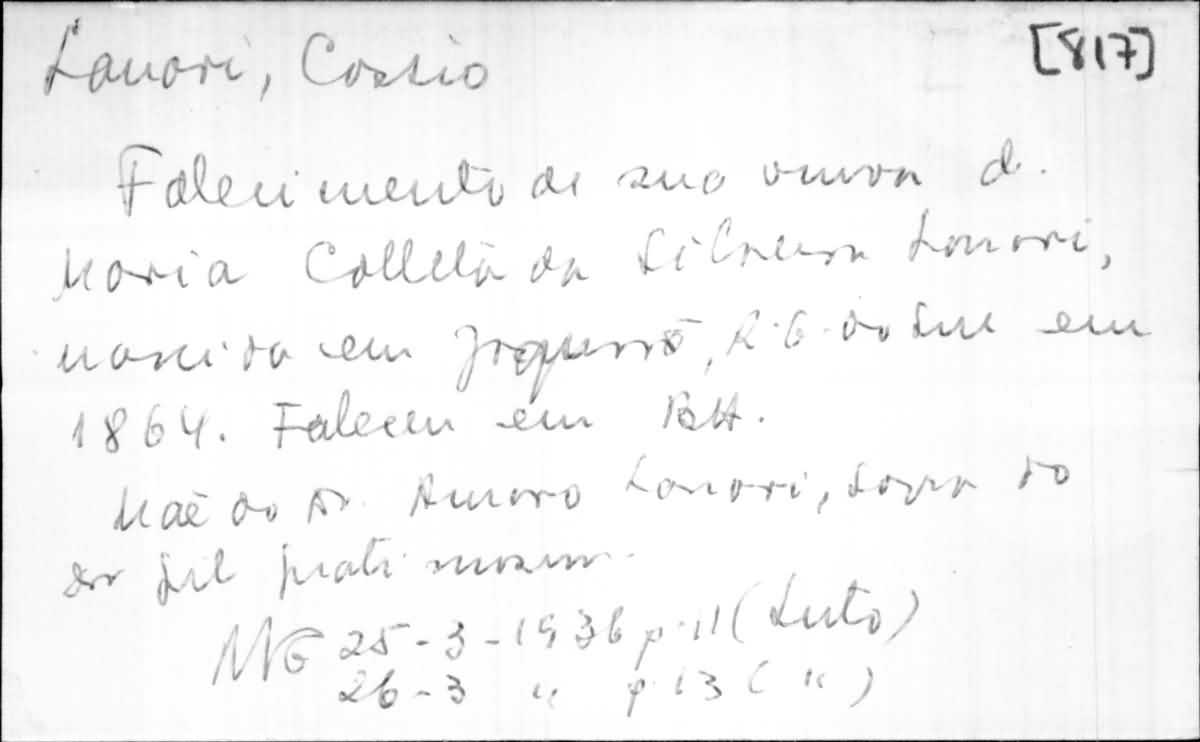 Lanari, Cassio [817]
Falecimento de sua viuva d.
Maria Colleta da Silveira Lanari,
nascida em Jaguarão, R.G. do Sul em
1864. Faleceu em BH.
Mãe do Dr. Amaro Lanari, sogra do
dr Gil
MG 25-3-1936 p.11 (Luto)
26-3 " p 13 ( " )